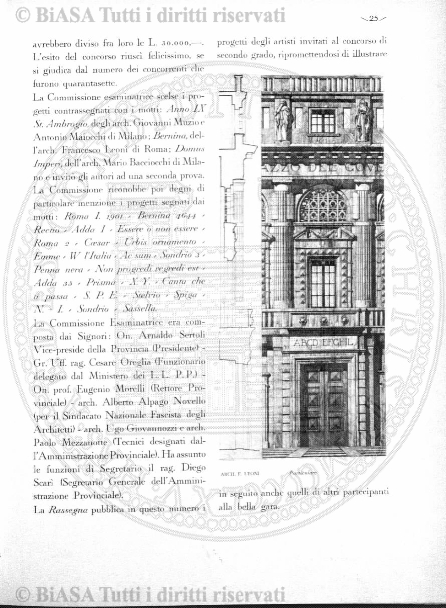 © BiASA Tutti i diritti riservati
25
avrebbero diviso fra loro le L. 30.000,—.
L'esito del concorso riuscì felicissimo, se
si giudica dal numero dei concorrenti che
furono quarantasette.
La Commissione esaminatrice scelse i pro-
getti contrassegnati con i motti: Anno IX
S. Ambrogio, degli arch. Giovanni Muzio e
Antonio Maiocchi di Milano; Bernina, del-
l'arch. Francesco Leoni di Roma; Domus
Imperi, dell'arch. Mario Bacciocchi di Mila-
no e invitò gli autori ad una seconda prova.
La Commissione riconobbe poi degni di
particolare menzione i progetti segnati dai
motti: Roma I. 1901 - Bernina 4644 -
Recta - Adda I - Essere o non essere -
Roma 2 - Cæsar - Urbis ornamento -
Emme - W l'Italia - Ac sum - Sondrio 3 -
Penna nera - Non progredi regredi est -
Adda 33 - Prisma - X Y - Canta che
ti passa - S. P. E. - Stelvio - Spiga -
N. I. - Sondrio - Sassella.
La Commissione Esaminatrice era com-
posta dai Signori: On. Arnaldo Sertoli
Vice-preside della Provincia (Presidente) -
Gr. Uff. rag. Cesare Oreglia (Funzionario
delegato dal Ministero dei L.L. P.P.) -
On. prof. Eugenio Morelli (Rettore Pro-
vinciale) - arch. Alberto Alpago Novello
(per il Sindacato Nazionale Fascista degli
Architetti) - arch. Ugo Giovannozzi e arch.
Paolo Mezzanotte (Tecnici designati dal-
l'Amministrazione Provinciale). Ha assunto
le funzioni di Segretario il rag. Diego
Scari (Segretario Generale dell'Ammini-
strazione Provinciale).
La Rassegna pubblica in questo numero i
progetti degli artisti invitati al concorso di
secondo grado, ripromettendosi di illustrare
AZZO DEL GOVE
ARCH. F. LEONI
Particolare
in seguito anche quelli di altri partecipanti
alla bella gara.
© BiASA Tutti i diritti riservati